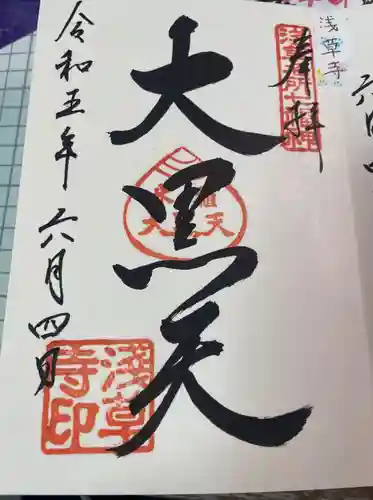 奉拝
大黒天
令和五年六月四日
浅草寺
浅草寺印